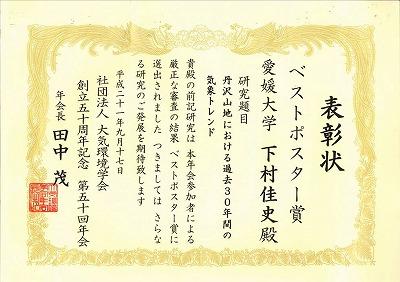 表彰状
ベストポスター賞
愛媛大学 下村佳史殿
研究題目
丹沢山地における過去30年間の
気象トレンド
貴殿の前記研究は 本年会参加者による
厳正な審査の結果 ベストポスター賞に
選出されました つきましては さらな
る研究のご発展を期待致します
平成二十一年九月十七日
社団法人 大気環境学会
創立五十周年記念 第五十回年会
年会長 田中 茂